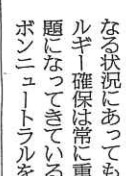 なる状況にあっても
ルギー確保は常に重
題になってきている
ボンニュートラルを